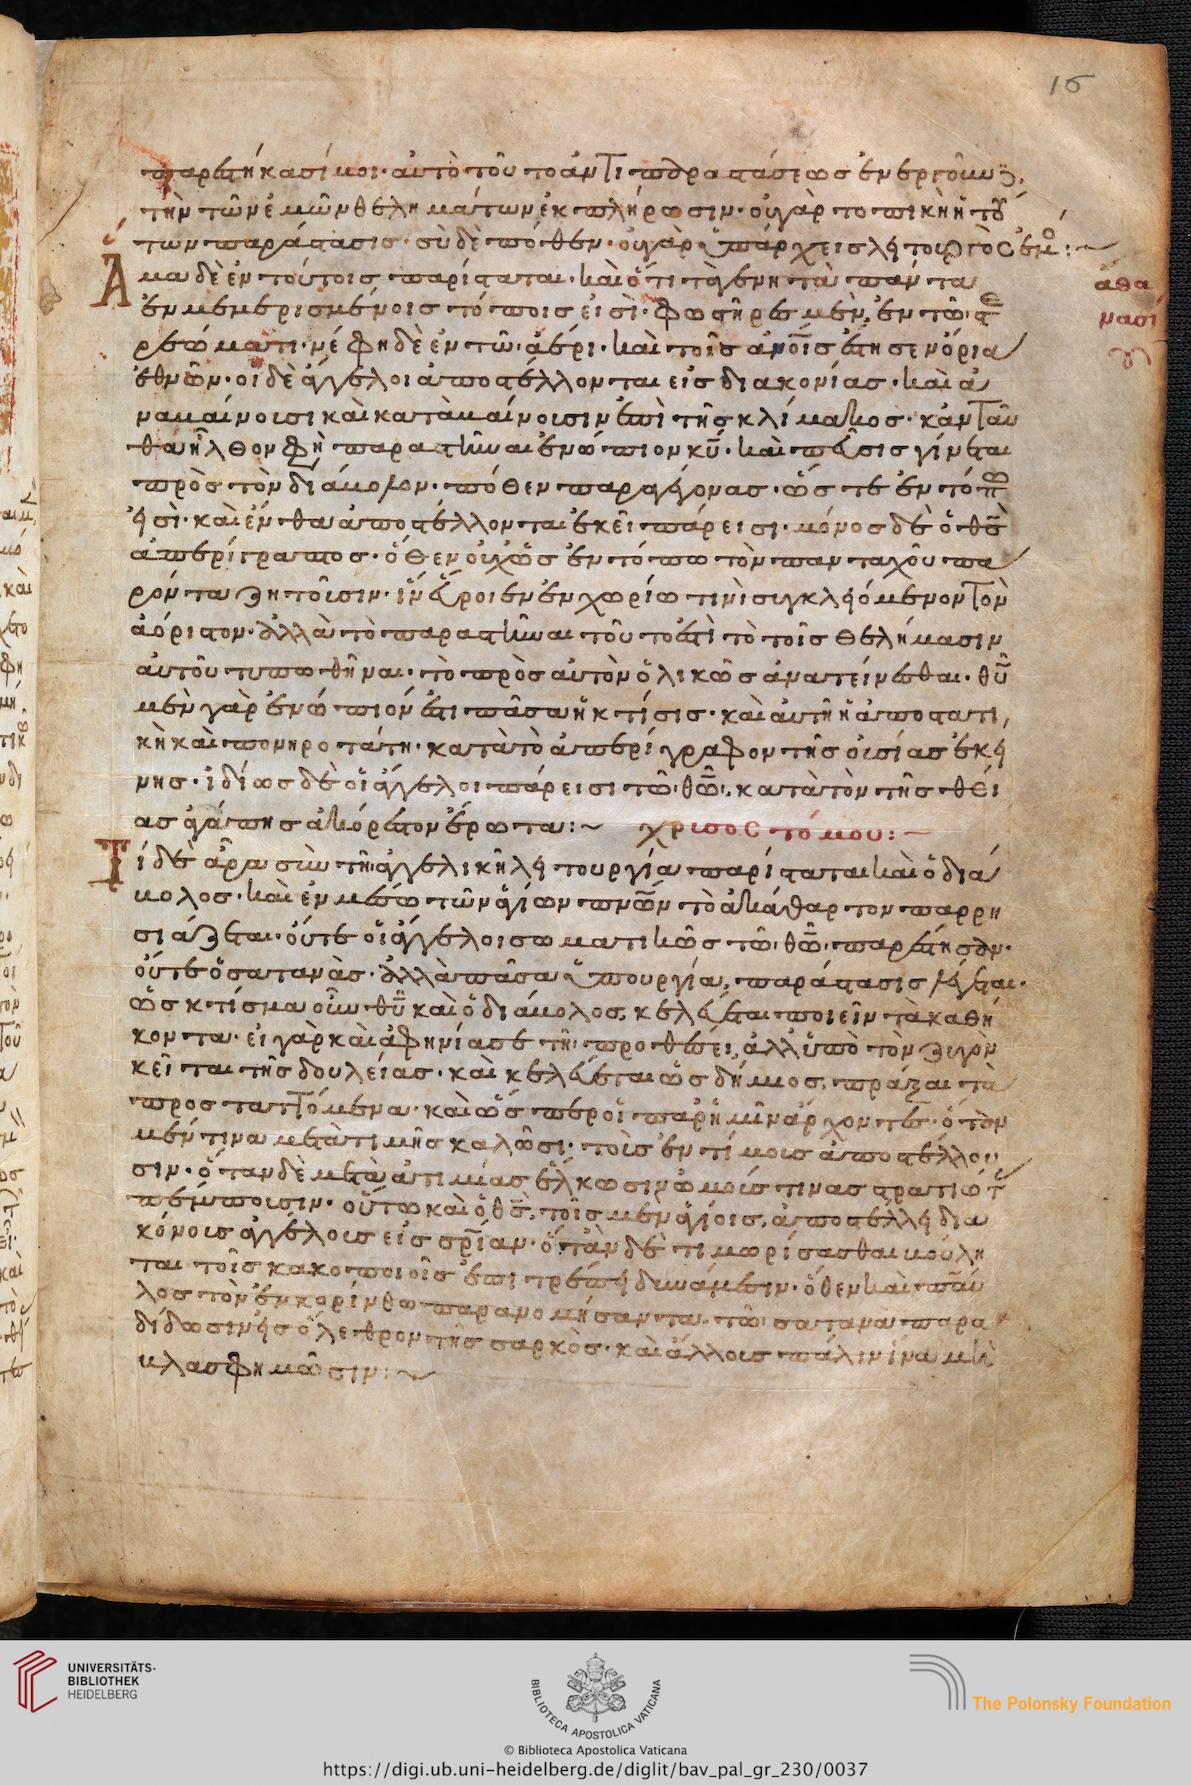 16
παρεστήκασί μοι· αὐτὸ τοῦτο ἀντὶ παραστάσεως ἐνεργοῦν
τὴν τῶν ἐμῶν θελημάτων ἐκπλήρωσιν· οὐ γὰρ τοπικὴ ἡ τού
των παράστασις· σὺ δὲ πόθεν· οὐ γὰρ ὑπάρχεις λειτουργὸς ἐμός :~
Ἅμα δὲ ἐν τούτοις παρίσταται· καὶ ὅτι τὰ γενητὰ πάντα
ἐν μεμερισμένοις τόποις εἰσί· φωστῆρες μὲν, ἐν τῷ στε
ρεώματι· νέφη δὲ ἐν τῷ ἀέρι· καὶ τοῖς ἀνοῖς ἔστησεν ὅρια
ἐθνῶν· οἱ δὲ ἄγγελοι ἀποστέλλονται εἰς διακονίας· καὶ ἀ
ναβαίνουσι καὶ καταβαίνουσιν ἐπὶ τῆς κλίμακος· κἀνταῦ
θα ἦλθον φη παραστῆναι ἐνώπιον κυ· καὶ πεῦσις γίνεται
πρὸς τὸν διάβολον· πόθεν παραγέγονας· ὥστε ἐν τόπῳ
εἰσὶ· καὶ ἔνθα ἀποστέλλονται ἐκεῖ πάρεισι· μόνος δὲ ὁ θς
ἀπερίγραπτος· ὅθεν οὐχ ὡς ἐν τόπω τὸν πανταχοῦ πα
ρόντα ζητοῦσιν· ἵν' εὕροιεν ἐν χωρίω τινὶ συγκλειόμενον τὸν
ἀόριστον· ἀλλὰ τὸ παραστῆναι τοῦτό ἐστι τὸ τοῖς θελήμασιν
αὐτοῦ τυπωθῆναι· τὸ πρὸς αὐτὸν ὁλικῶς ἀνατείνεσθαι· θυ
μὲν γὰρ ἐνώπιόν ἐστι πᾶσα ἡ κτίσις· καὶ αὐτὴ ἡ ἀποστατι
κὴ καὶ πονηροτάτη· κατὰ τὸ ἀπερίγραφον τῆς οὐσίας ἐκεί
νης· ἰδίως δὲ οἱ ἄγγελοι πάρεισι τῷ θω, κατὰ τὸν τῆς θεί
ας ἀγάπης ἀκόρεστον ἔρωτα :~ χρυσοστόμου :~
Τί δὲ ἄρα σὺν τῇ ἀγγελικῇ λειτουργία παρίσταται καὶ ὁ διά
βολος· καὶ ἐν μέσω τῶν ἁγίων πνων τὸ ἀκάθαρτον παρρη
σιάζεται· οὔτε οἱ ἄγγελοι σωματικῶς τῷ θω παρέστησαν·
οὔτε ὁ σατανᾶς· ἀλλὰ πᾶσα ὑπουργία, παράστασις λέγεται·
ὡς κτίσμα οὖν θυ καὶ ὁ διάβολος, κελεύεται ποιεῖν τὰ καθή
κοντα· εἰ γὰρ καὶ ἀφηνίασε τῇ προθέσει, ἀλλ' ὑπὸ τὸν ζυγὸν
κεῖται τῆς δουλείας· καὶ κελεύεται ὡς δήμιος, πρᾶξαι τὰ
προσταττόμενα· καὶ ὥσπερ οἱ παρ' ἡμῖν ἄρχοντες· ὅτ' ἂν
μέν τινα μετὰ τιμῆς καλῶσι· τοὺς ἐντίμους ἀποστέλλου
σιν· ὅταν δὲ μετὰ ἀτιμίας ἕλκωσιν ὠμούς τινας στρατιώτ
πέμπουσιν· οὕτω καὶ ὁ θς, τοῖς μὲν ἁγίοις, ἀποστέλλει δια
κόνους ἀγγέλους εἰς σρίαν· ὅτ' ἂν δὲ τιμωρήσασθαι βούλη
ται τοὺς κακοποιοὺς ἐπιτρέπει δυνάμεσιν· ὅθεν καὶ παῦ
λος τὸν ἐν κορίνθω παρανομήσαντα, τῷ σατανᾷ παρα
δίδωσιν εἰς ὄλεθρον τῆς σαρκός· καὶ ἄλλους πάλιν ἵνα μὴ
βλασφημῶσιν :~
ἀθα
νασί
ου
UNIVERSITÄTS-
BIBLIOTHEK
HEIDELBERG
BIBLIOTECA APOSTOLICA VATICANA
The Polonsky Foundation
© Biblioteca Apostolica Vaticana
https://digi.ub.uni-heidelberg.de/diglit/bav_pal_gr_230/0037